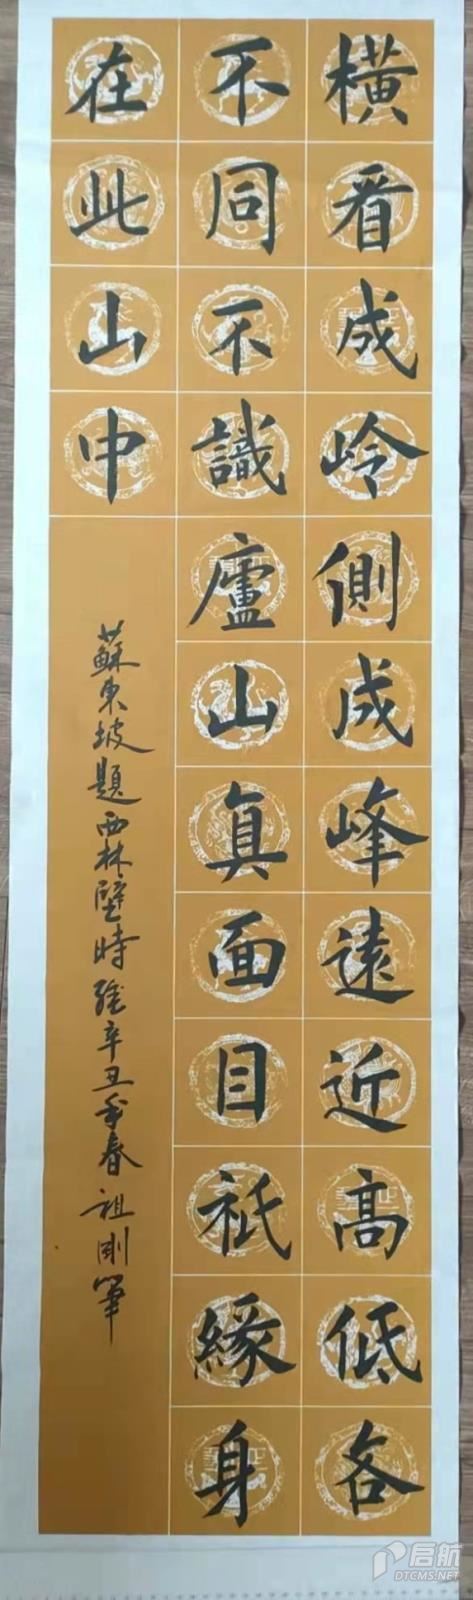 橫看成岭側成峰遠近高低各
不同不識廬山真面目祇緣身
在此山中
蘇東坡題西林壁時維辛丑年春祖刚筆
启航
DTCMS.NET